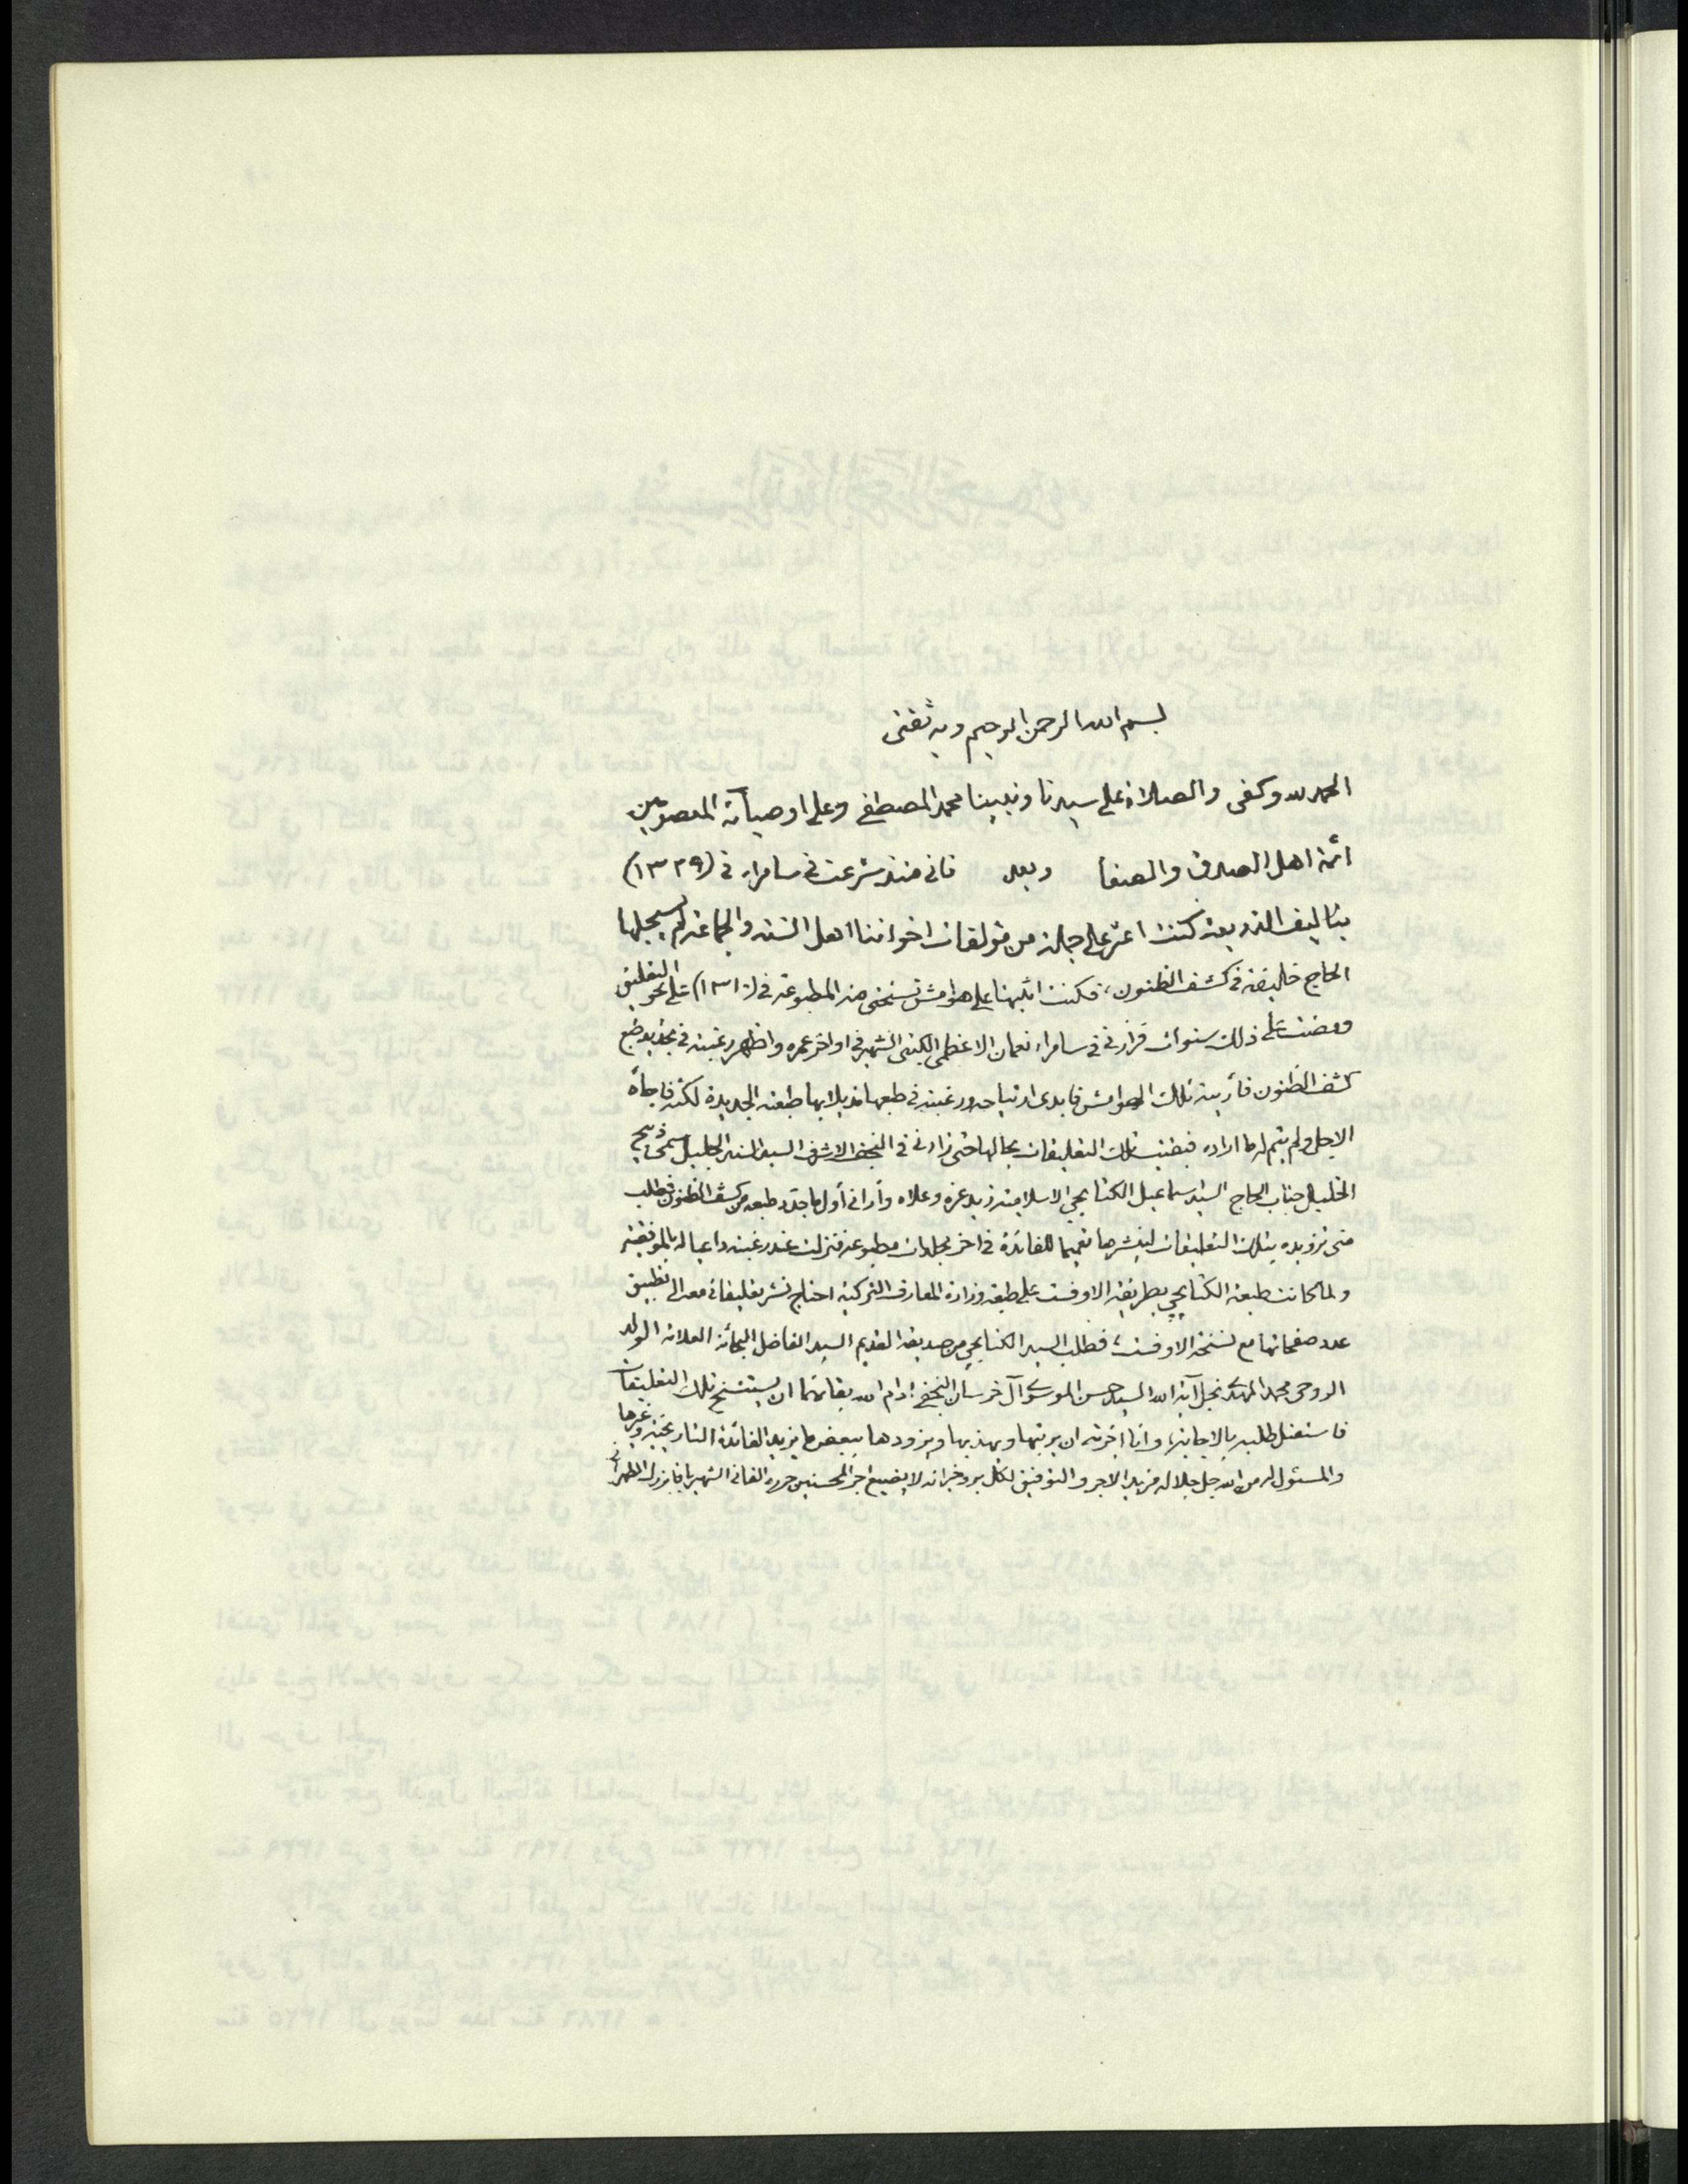 بسم الله الرحمن الرحيم وبه ثقتى
الحمد لله وكفى والصلاة على سيدنا ونبينا محمد المصطفى وعلى اوصيائه المعصومين
ائمة اهل الصدق والصفا وبعد فانى منذ شرعت فى سامراء فى (١٣٢٩)
بتأليف الذريعة كنت اعثر على جملة من مؤلفات اخواننا اهل السنة والجماعة لم يسجلها
الحاج خليفة فى كشف الظنون، فكنت اثبتها على هوامش نسختى منه المطبوعة فى (١٣١٠) على نحو التعليق
ومضت على ذلك سنوات فزارنى فى سامراء نعمان الاعظمى الكتبى الشهير فى اواخر عمره واظهر رغبته فى تجديد طبع
كشف الظنون فأريته تلك الهوامش فابدى ارتياحه ورغبته فى طبعها مذيلا بها طبعته الجديدة لكنه فاجأه
الاجل ولم يتم له ما اراده فبقيت تلك التعليقات بحالها حتى زارنى فى النجف الاشرف السيد السند الجليل سمى ذبيح
الخليل جناب الحاج السيد اسماعيل الكتابچى الاسلامية زيد عزه وعلاه وأرانى أول ما جدد طبعه من كشف الظنون وطلب
منى تزويده بتلك التعليقات لينشرها تعميما للفائدة فى اخر مجلدات مطبوعه فنزلت عند رغبته داعيا له بالموفقية
ولما كانت طبعة الكتابچى بطريقة الاوفست على طبعة وزارة المعارف التركية احتاج نشر تعليقاتى معه الى تطبيق
عدد صفحاتها مع نسخة الاوفست، فطلب السيد الكتابچى من صديقه القديم السيد الفاضل البحاثة العلامة الولد
الروحى محمد المهدى نجل آية الله السيد حسن الموسوى آل خرسان النجفى ادام الله بقائهما ان يستنسخ تلك التعليقات
فاستقبل طلبه بالاجابة، وانا اجزته ان يرتبها ويهذبها ويزودها ببعض ما يزيد الفائدة التاريخية وغيرها
والمسئول له من الله جل جلاله مزيد الاجر والتوفيق لكل بر وخير انه لا يضيع اجر المحسنين حرره الفانى الشهير باقا بزرك الطهرانى